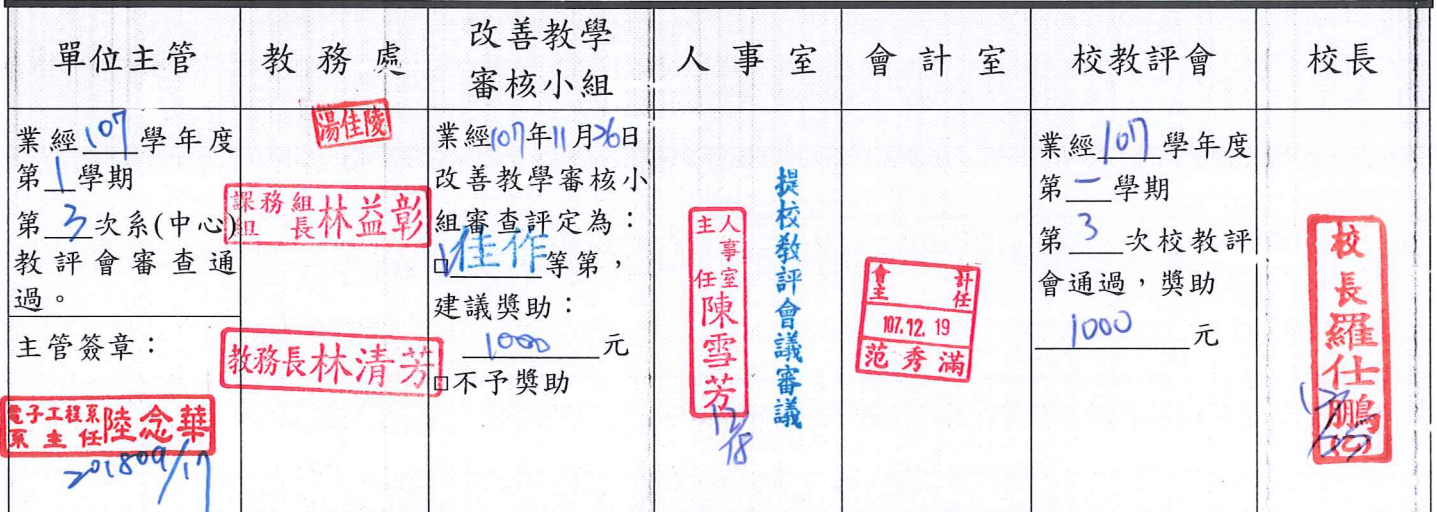 單位主管
教務處
改善教學
審核小組
人事室
會計室
校教評會
校長
業經107學年度
第1學期
第3次系(中心)
教評會審查通
過。
主管簽章：
電子工程系
系主任陸念華
201809/17
湯佳陵
課務組
組長林益彰
教務長林清芳
業經107年11月26日
改善教學審核小
組審查評定為：
□佳作等第，
建議獎助：
1000元
□不予獎助
人事室
主任陳雪芳
12/18
提校教評會議審議
會計
主任
107.12.19
范秀滿
業經107學年度
第一學期
第3次校教評
會通過，獎助
1000元
校長羅仕鵬